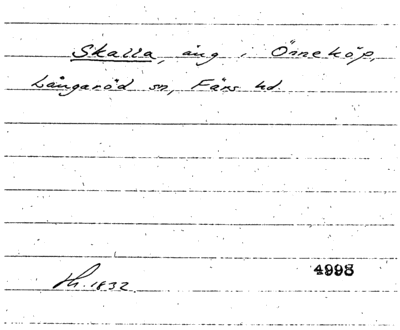 Skalla, äng i Örneköp,
Långaröd sn, Färs hd.
4998
Lh. 1832